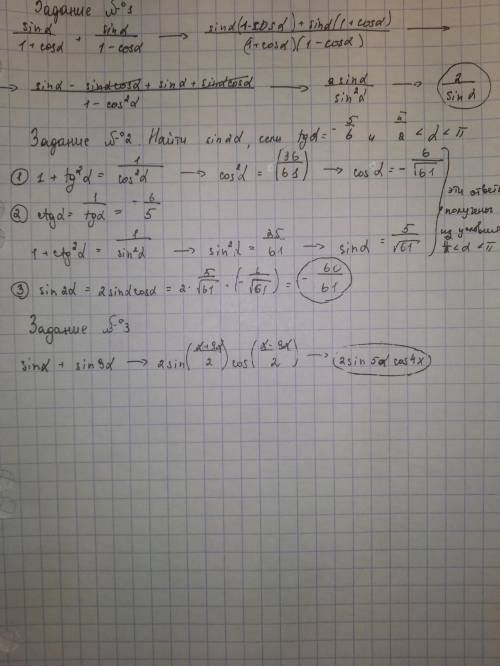 Задание №1
sinα/(1+cosα) + sinα/(1-cosα) → (sinα(1-cosα) + sinα(1+cosα))/((1+cosα)(1-cosα)) →
→ (sinα - sinαcosα + sinα + sinαcosα)/(1-cos²α) → 2sinα/sin²α → 2/sinα
Задание №2 Найти sin2α, если tgα = -5/6 и π/2 < α < π
① 1 + tg²α = 1/cos²α → cos²α = (36/61) → cosα = -6/√61
② ctgα = 1/tgα = -6/5
1 + ctg²α = 1/sin²α → sin²α = 25/61 → sinα = 5/√61
эти ответы
получены
из условия
π/2 < α < π
③ sin2α = 2sinαcosα = 2·5/√61·(-6/√61) = -60/61
Задание №3
sinα + sin9α → 2sin((α+9α)/2)cos((α-9α)/2) → 2sin5α cos4α